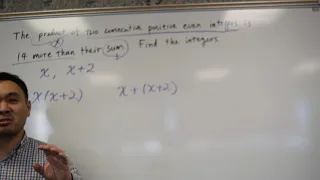 The product of two consecutive positive even integers is
14 more than their sum. Find the integers.
x, x+2
x(x+2) x+(x+2)